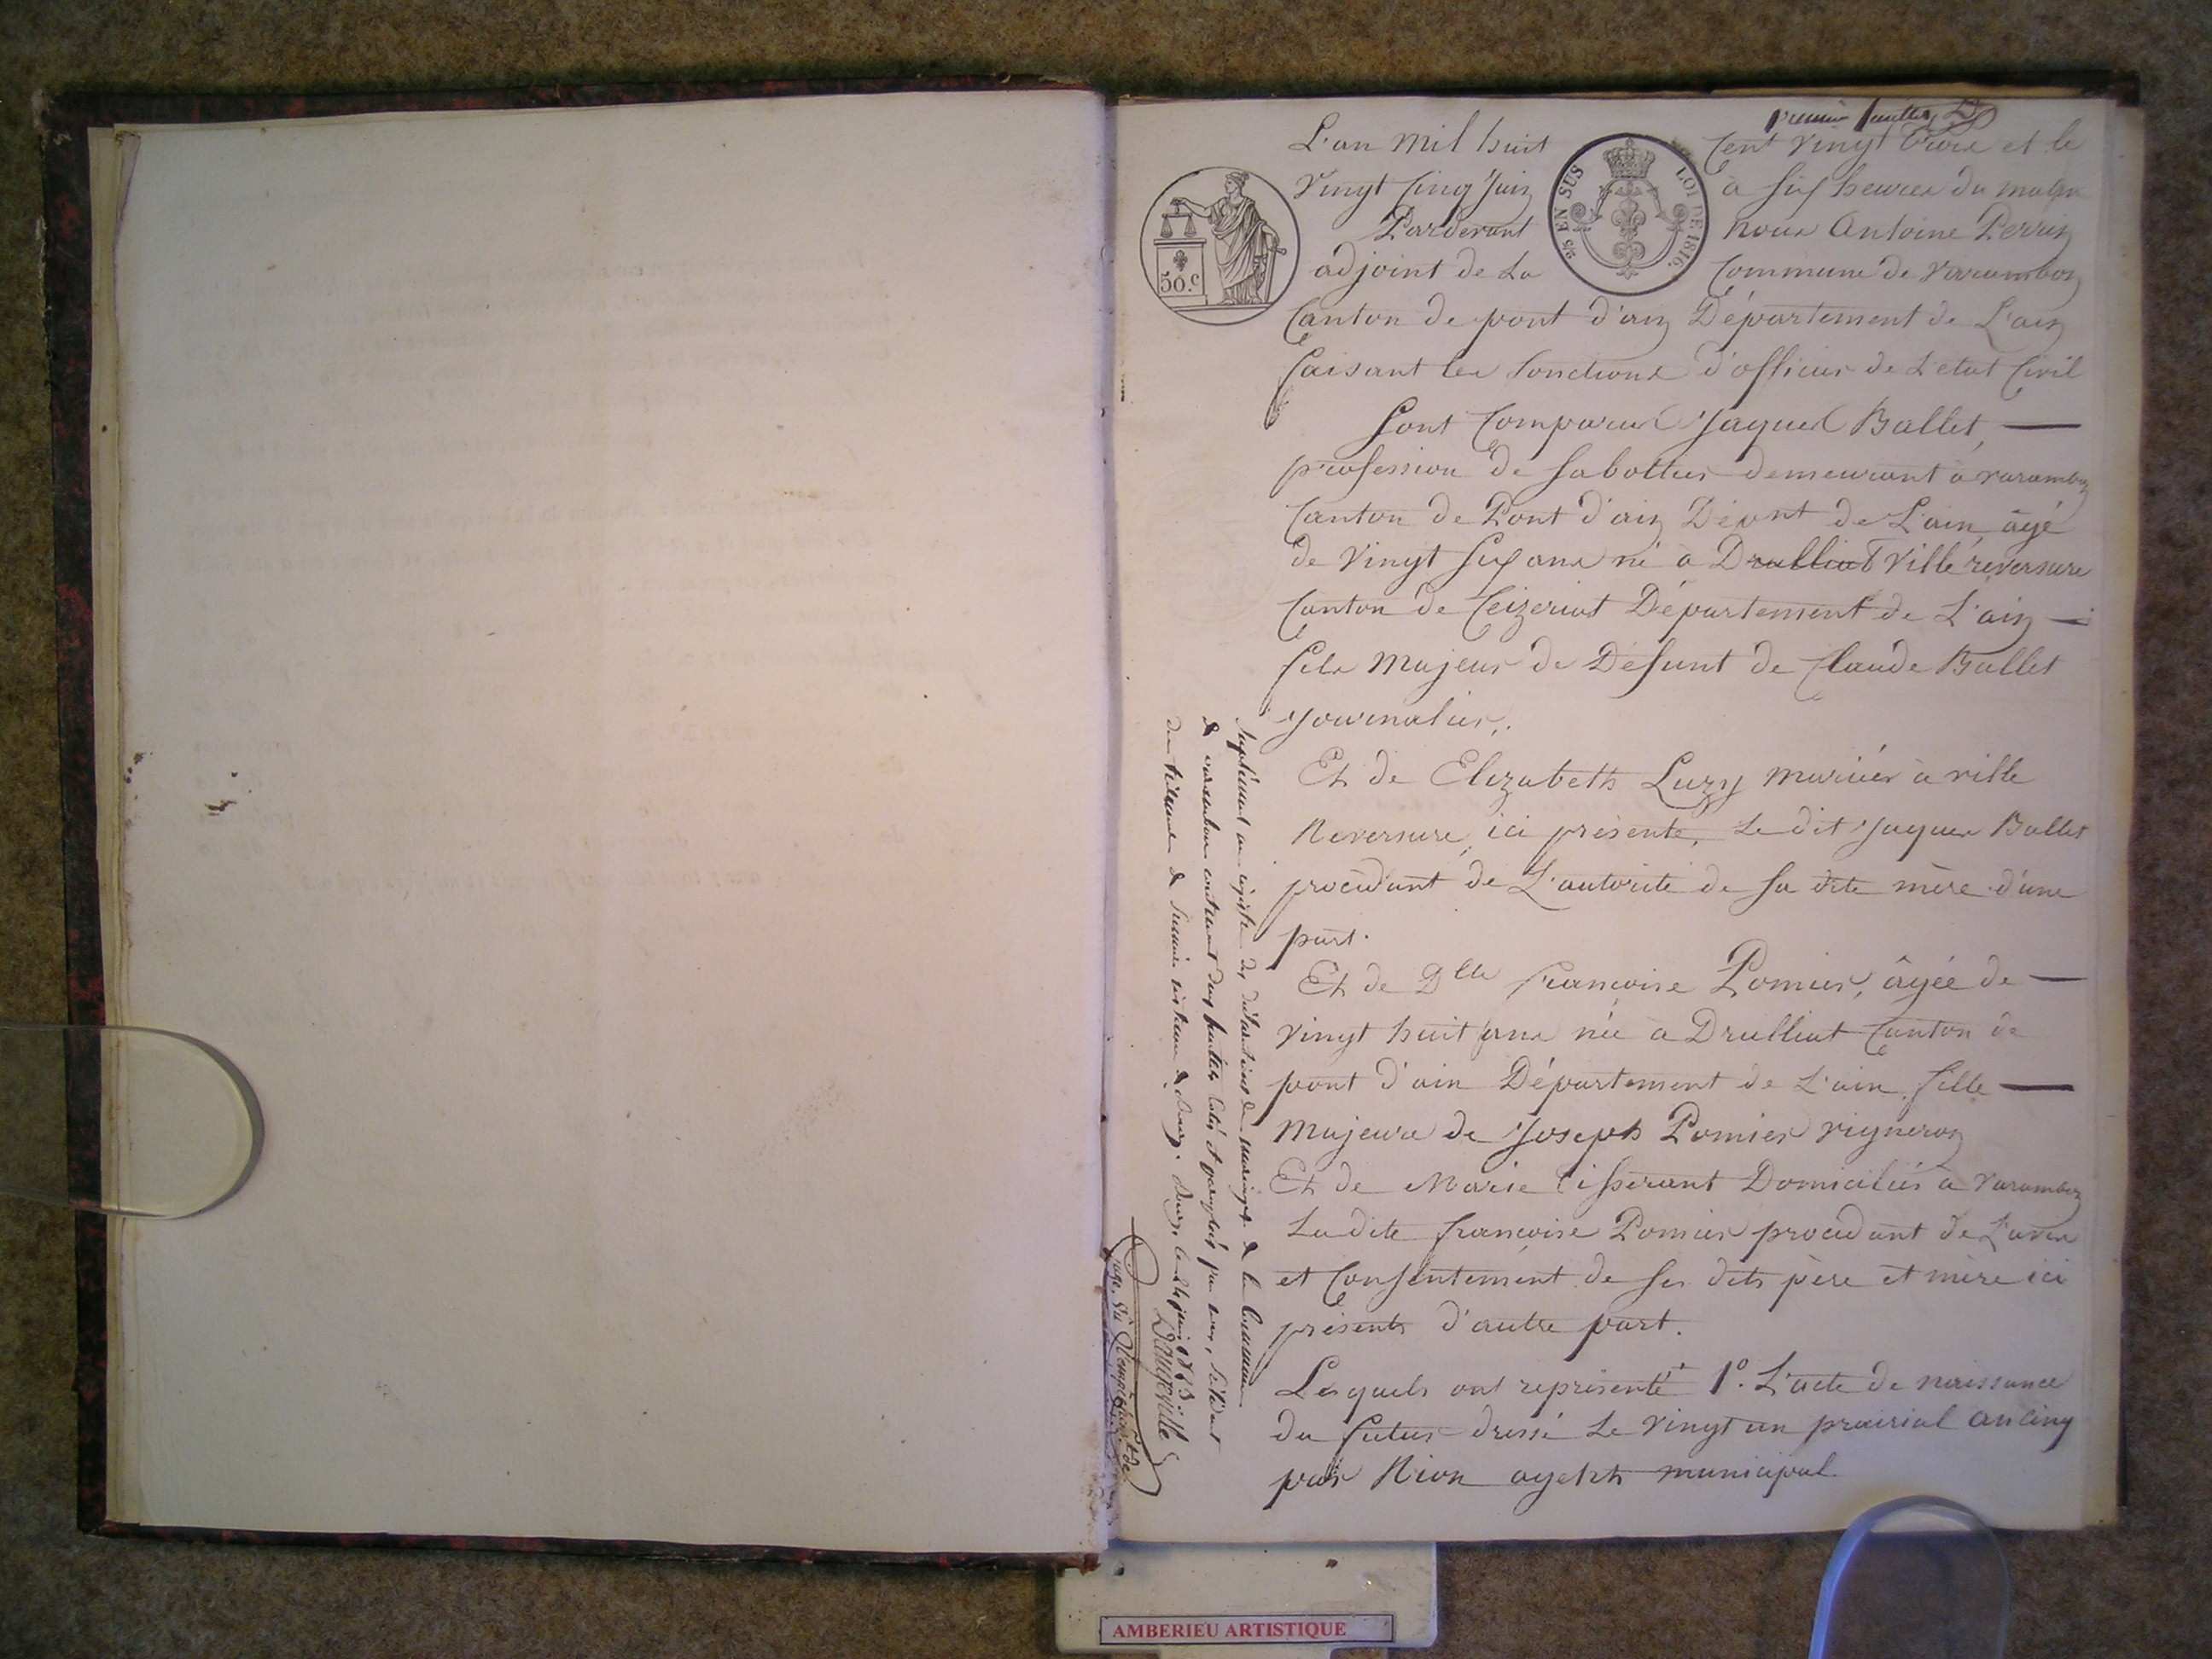 premier feuillet
L'an mil huit Cent vingt trois et le
vingt cinq Juin à six heures du matin
Pardevant nous Antoine Perrin
adjoint de la Commune de varambon
Canton de pont d'ain Département de L'ain
faisant les fonctions d'officier de L'etat Civil
Sont Comparus Jaques Ballet, —
profession de sabottier demeurant à varambon
Canton de Pont d'ain Dépnt de L'ain, âgé
de vingt six ans né à Drulliat ville reversure
Canton de Ceizeriat Département de L'ain —
fils majeur de Défunt de Claude Ballet
journalier,.
Et de Elizabeth Luzy mariés à ville
Reversure, ici présente, Le dit Jaques Ballet
procédant de L'autorité de sa dite mère d'une
part.
Et de Dlle françoise Pomier, âgée de —
vingt huit ans née à Drulliat Canton de
pont d'ain Département de L'ain fille —
majeure de Joseph Pomier vigneron
Et de Marie Tisserant Domiciliés à varambon
La dite françoise Pomier procédant de L'avis
et Consentement de ses dits père et mère ici
présents d'autre part.
Lesquels ont représenté 1º. L'acte de naissance
du futur dressé Le vingt un prairial an cinq
par Rion agent municipal
Supplément au registre des déclarations de mariages de la Commune
de varambon contenant deux feuillets cotés et paraphés par nous, Président
du tribunal de première instance de Bourg. Bourg, le 24 juin 1823.
50.c
2/5 EN SUS LOI DE 1816.
AMBERIEU ARTISTIQUE